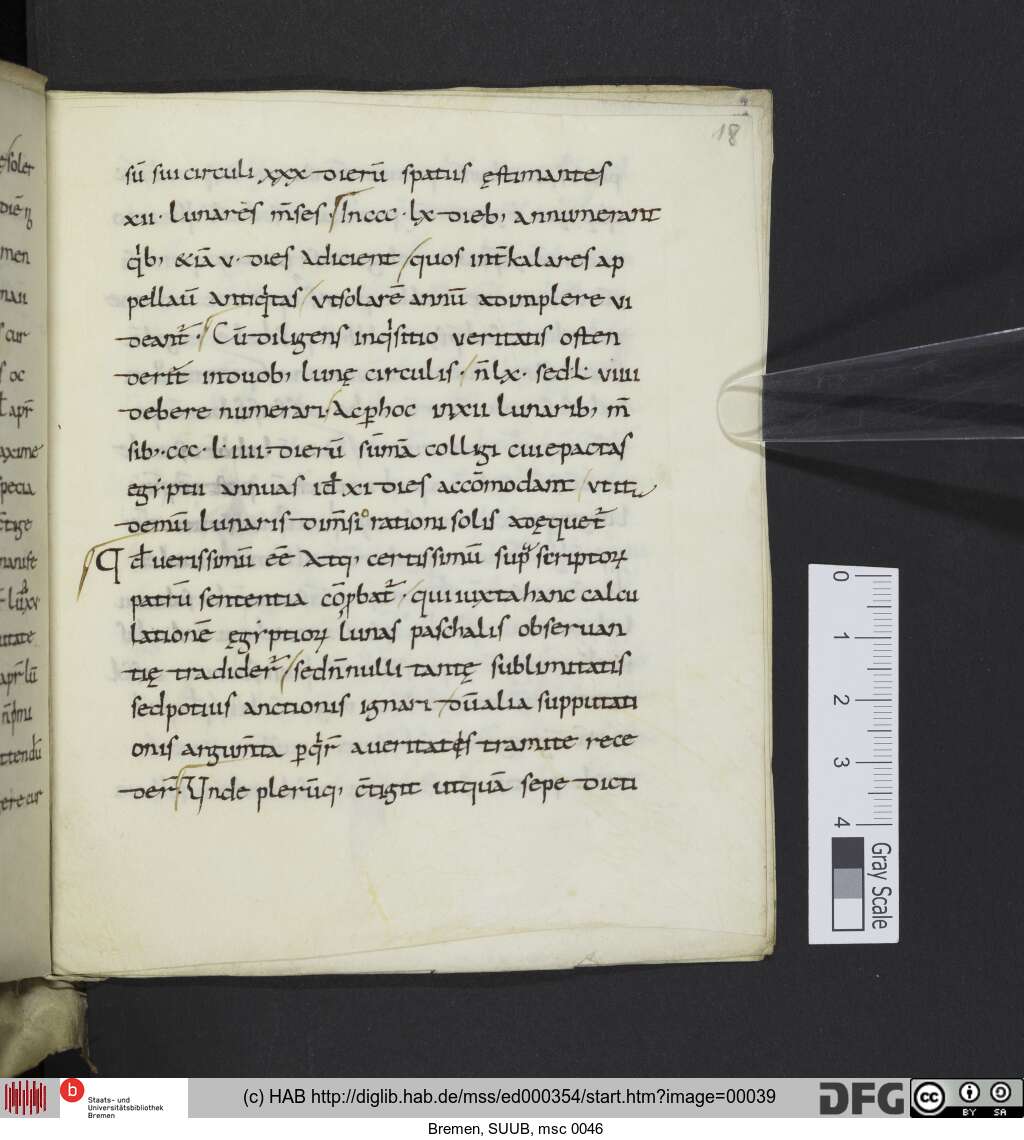 18
sū sui circuli xxx dierū spatiis ęstimantes
xii · lunares m̄ses · In ccc · lx dieb; annumerant
qͥb; &iā v · dies adicient quos int̄kalares ap
pellaū antiqͥtas vt solarē annū adimplere vi
deant᷑ · Cū diligens inqͥsitio veritatis osten
derit in duob; lunę circulis · n̄ lx · sed L viiii
debere numerari · Ac ꝑ hoc in xii lunarib; m̄
sib; · ccc · L iiii · dierū sūmā colligi cui epactas
egyptii annuas id̄ xi dies accōmodant vt it
demū lunaris dim̄sio rationi solis adęquet᷑
Qd̄ verissimū eē Atq; certissimū supͣscriptoꝝ
patrū sententia cōꝓbat᷑ · qui iuxta hanc calcu
lationē ęgyptioꝝ lunas paschalis obseruan
tię tradider᷑ sed n̄nulli tantę sublimitatis
sed potius anctionis ignari dū alia supputati
onis argum̄ta ꝑqͥr᷑ a veritatis tramite rece
der᷑ · Unde plerūq; c̄tigit ut quā sepe dicti
0
1
2
3
4
Gray Scale
Staats- und
Universitätsbibliothek
Bremen
(c) HAB http://diglib.hab.de/mss/ed000354/start.htm?image=00039
DFG
cc
BY SA
Bremen, SUUB, msc 0046